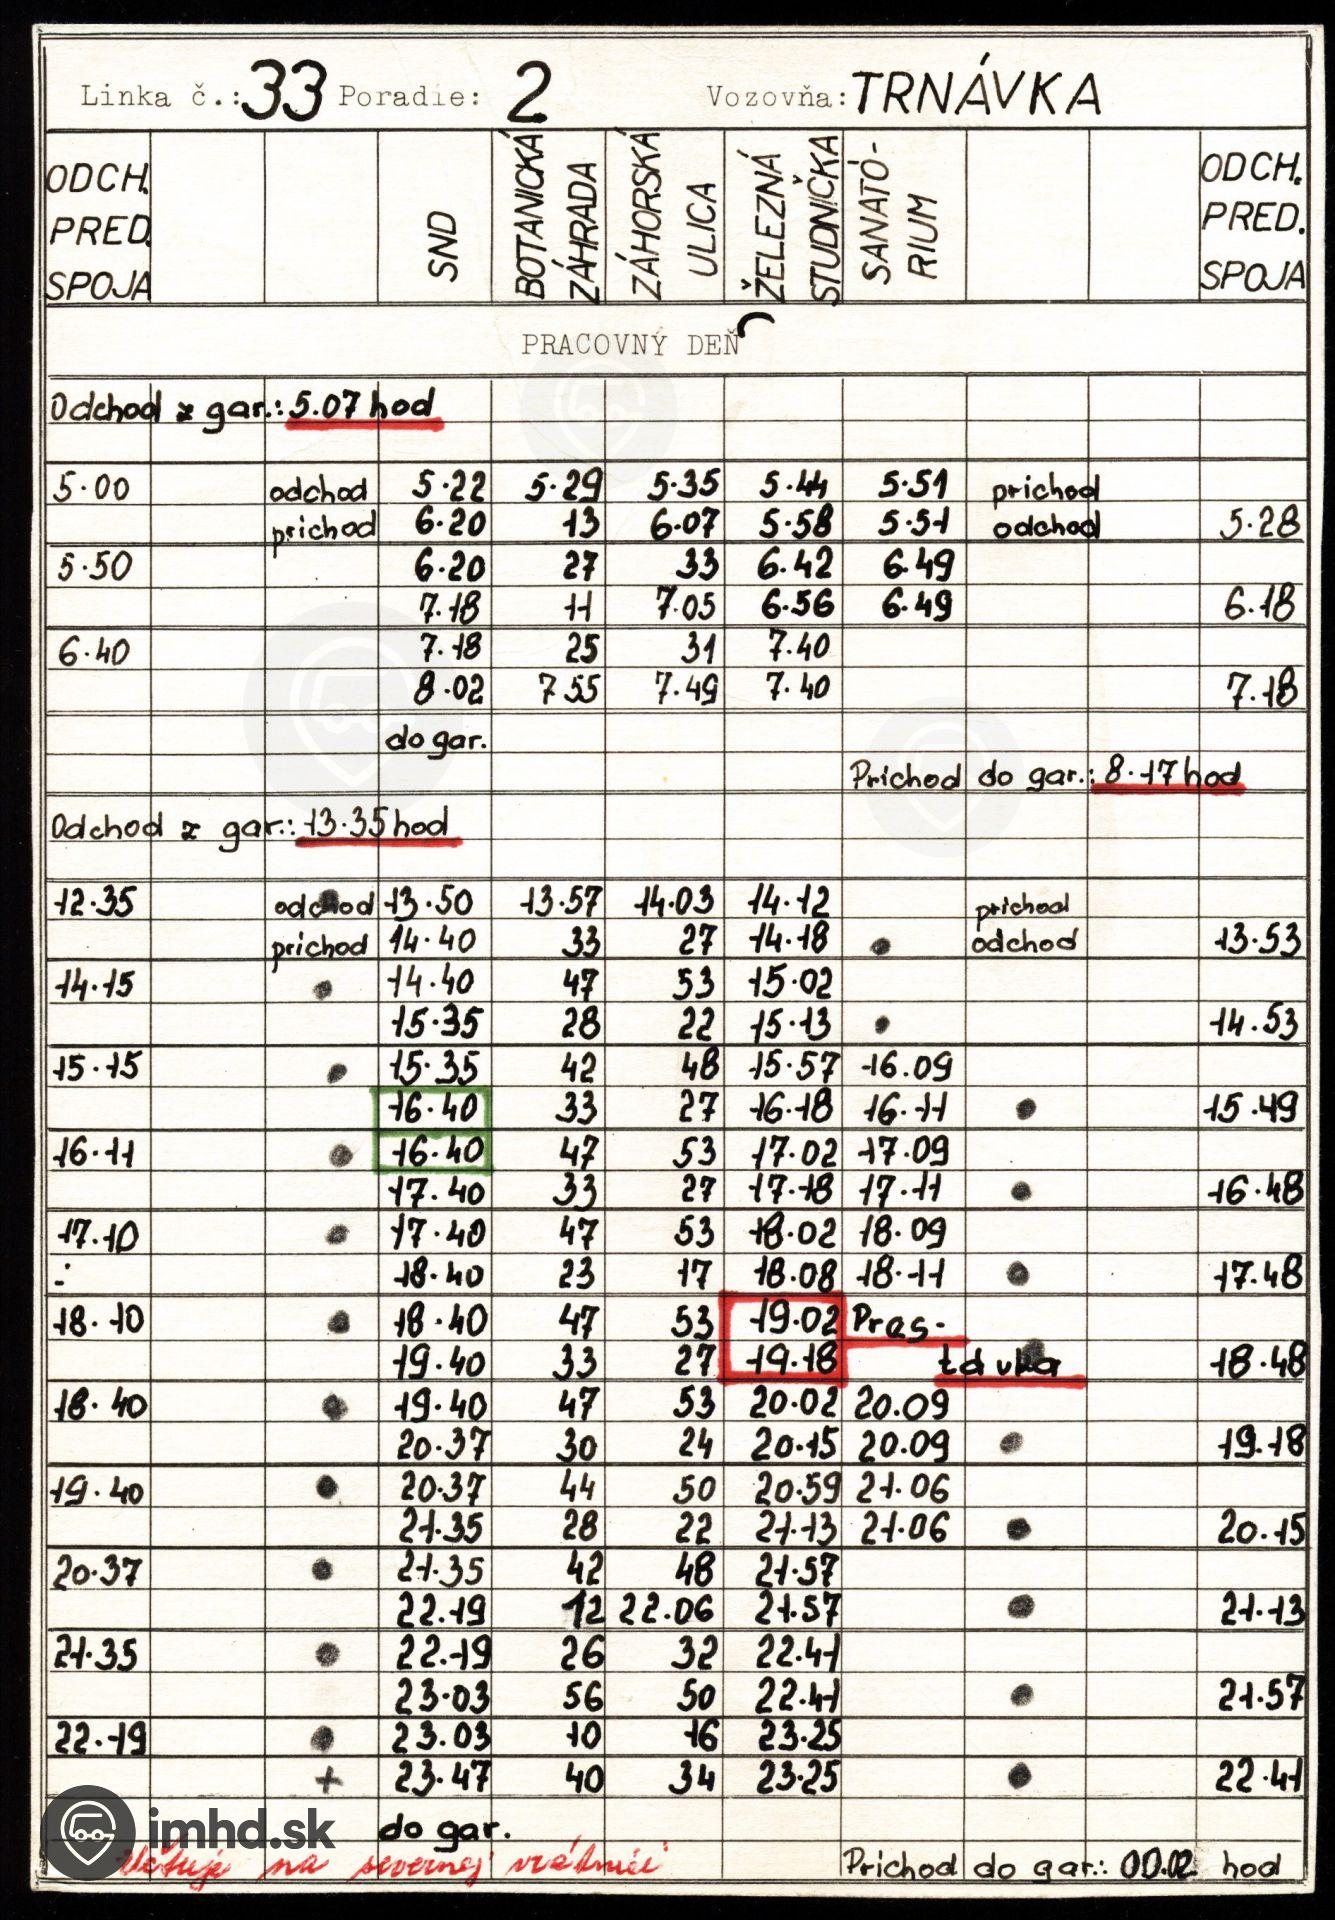 Linka č.: 33 Poradie: 2 Vozovňa: TRNÁVKA
ODCH. PRED. SPOJA SND BOTANICKÁ ZÁHRADA ZÁHORSKÁ ULICA ŽELEZNÁ STUDNIČKA SANATÓ-RIUM ODCH. PRED. SPOJA
PRACOVNÝ DEŇ
Odchod z gar.: 5.07 hod
5.00 odchod 5.22 5.29 5.35 5.44 5.51 príchod
príchod 6.20 13 6.07 5.58 5.51 odchod 5.28
5.50 6.20 27 33 6.42 6.49
7.18 11 7.05 6.56 6.49 6.18
6.40 7.18 25 31 7.40
8.02 7 55 7.49 7.40 7.18
do gar.
Príchod do gar.: 8.17 hod
Odchod z gar.: 13.35 hod
12.35 odchod 13.50 13.57 14.03 14.12 príchod
príchod 14.40 33 27 14.18 odchod 13.53
14.15 14.40 47 53 15.02
15.35 28 22 15.13 14.53
15.15 15.35 42 48 15.57 16.09
16.40 33 27 16.18 16.11 15.49
16.11 16.40 47 53 17.02 17.09
17.40 33 27 17.18 17.11 16.48
17.10 17.40 47 53 18.02 18.09
18.40 23 17 18.08 18.11 17.48
18.10 18.40 47 53 19.02 Pres-
19.40 33 27 19.18 távka 18.48
18.40 19.40 47 53 20.02 20.09
20.37 30 24 20.15 20.09 19.18
19.40 20.37 44 50 20.59 21.06
21.35 28 22 21.13 21.06 20.15
20.37 21.35 42 48 21.57
22.19 12 22.06 21.57 21.13
21.35 22.19 26 32 22.41
23.03 56 50 22.41 21.57
22.19 23.03 10 16 23.25
+ 23.47 40 34 23.25 22.41
imhd.sk do gar.
na severnej vrátnici Príchod do gar.: 00.02 hod